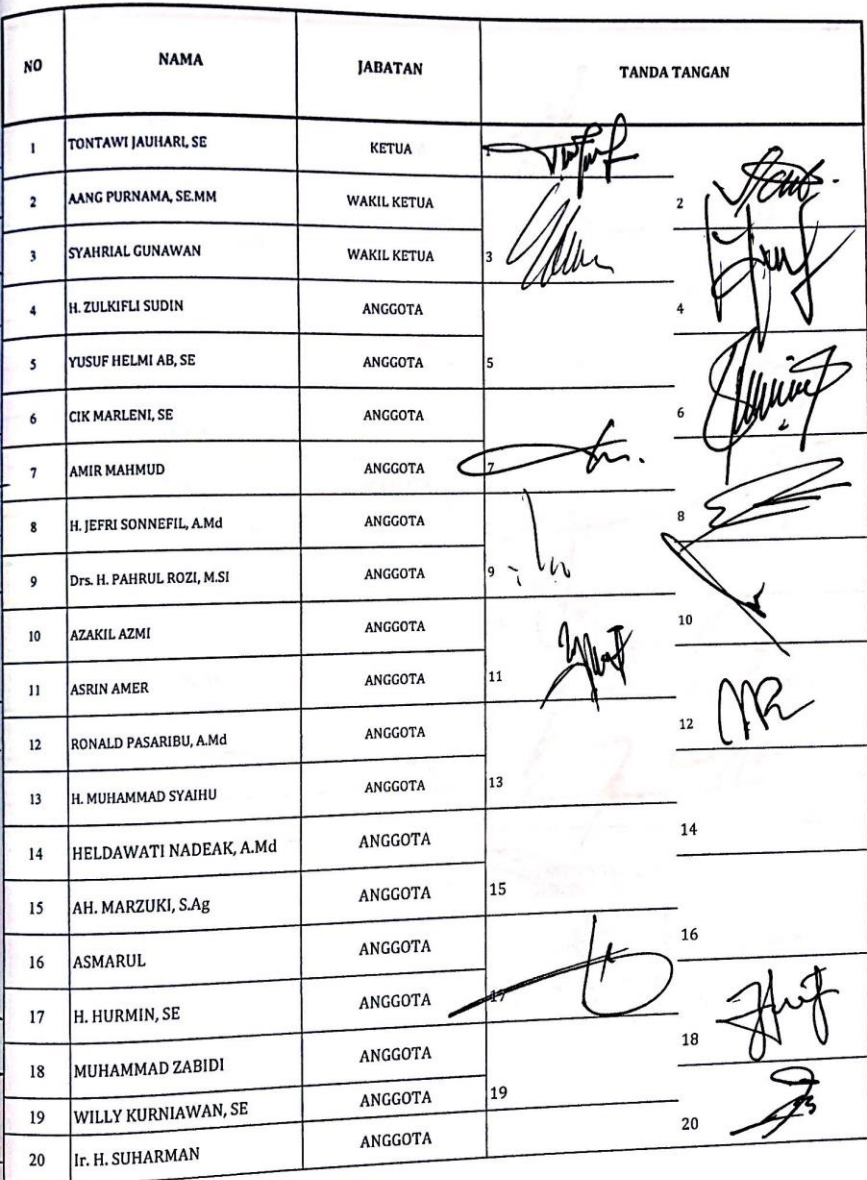 NO NAMA JABATAN TANDA TANGAN
1 TONTAWI JAUHARI, SE KETUA 1
2 AANG PURNAMA, SE.MM WAKIL KETUA 2
3 SYAHRIAL GUNAWAN WAKIL KETUA 3
4 H. ZULKIFLI SUDIN ANGGOTA 4
5 YUSUF HELMI AB, SE ANGGOTA 5
6 CIK MARLENI, SE ANGGOTA 6
7 AMIR MAHMUD ANGGOTA 7
8 H. JEFRI SONNEFIL, A.Md ANGGOTA 8
9 Drs. H. PAHRUL ROZI, M.SI ANGGOTA 9
10 AZAKIL AZMI ANGGOTA 10
11 ASRIN AMER ANGGOTA 11
12 RONALD PASARIBU, A.Md ANGGOTA 12
13 H. MUHAMMAD SYAIHU ANGGOTA 13
14 HELDAWATI NADEAK, A.Md ANGGOTA 14
15 AH. MARZUKI, S.Ag ANGGOTA 15
16 ASMARUL ANGGOTA 16
17 H. HURMIN, SE ANGGOTA 17
18 MUHAMMAD ZABIDI ANGGOTA 18
19 WILLY KURNIAWAN, SE ANGGOTA 19
20 Ir. H. SUHARMAN ANGGOTA 20